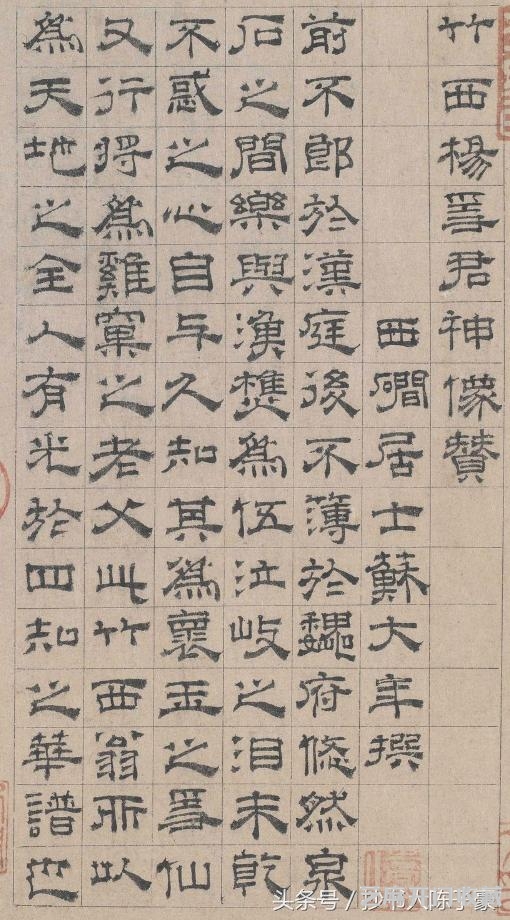 竹西楊君神像贊
西磵居士蘇大年撰
前不郎於漢庭後不簿於魏府倐然泉
石之間樂與漁樵爲伍泣岐之泪未乾
不惑之心自与久知其爲褱玉之仙
又行將爲雞窠之老父此竹西翁所以
爲天地之全人有光於四知之華譜也
头条号 /